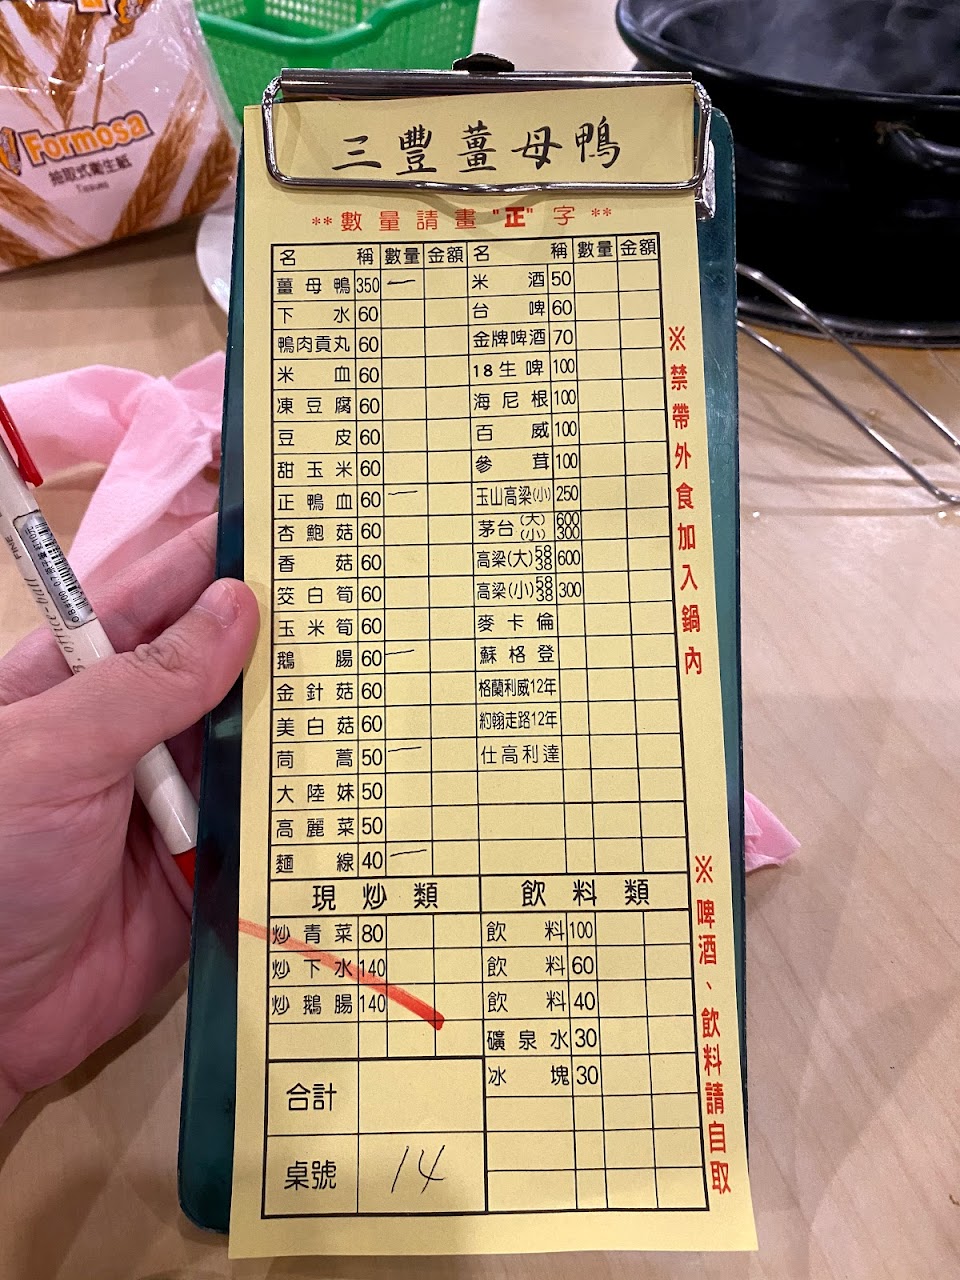 Formosa
抽取式衛生紙
Tissues
三豐薑母鴨
**數量請畫"正"字**
名稱 數量 金額 名稱 數量 金額
薑母鴨 350 一 米酒 50
下水 60 台啤 60
鴨肉貢丸 60 金牌啤酒 70
米血 60 18生啤 100
凍豆腐 60 海尼根 100
豆皮 60 百威 100
甜玉米 60 參茸 100
正鴨血 60 一 玉山高梁(小) 250
杏鮑菇 60 茅台(大)(小) 600 300
香菇 60 高梁(大)58 38 600
筊白筍 60 高梁(小)58 38 300
玉米筍 60 麥卡倫
鵝腸 60 一 蘇格登
金針菇 60 格蘭利威12年
美白菇 60 約翰走路12年
茼蒿 50 一 仕高利達
大陸妹 50
高麗菜 50
麵線 40 一
現炒類 飲料類
炒青菜 80 飲料 100
炒下水 140 飲料 60
炒鵝腸 140 飲料 40
礦泉水 30
合計 冰塊 30
桌號 14
※禁帶外食加入鍋內
※啤酒、飲料請自取